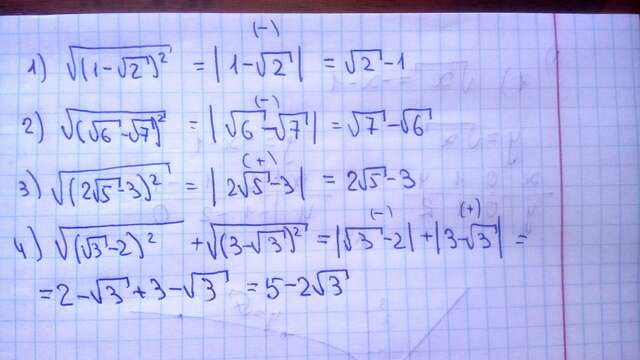 (-)
1) √(1-√2)² = |1-√2| = √2-1
(-)
2) √(√6-√7)² = |√6-√7| = √7-√6
(+)
3) √(2√5-3)² = |2√5-3| = 2√5-3
(-) (+)
4) √(√3-2)² + √(3-√3)² = |√3-2| + |3-√3| =
= 2-√3+3-√3 = 5-2√3